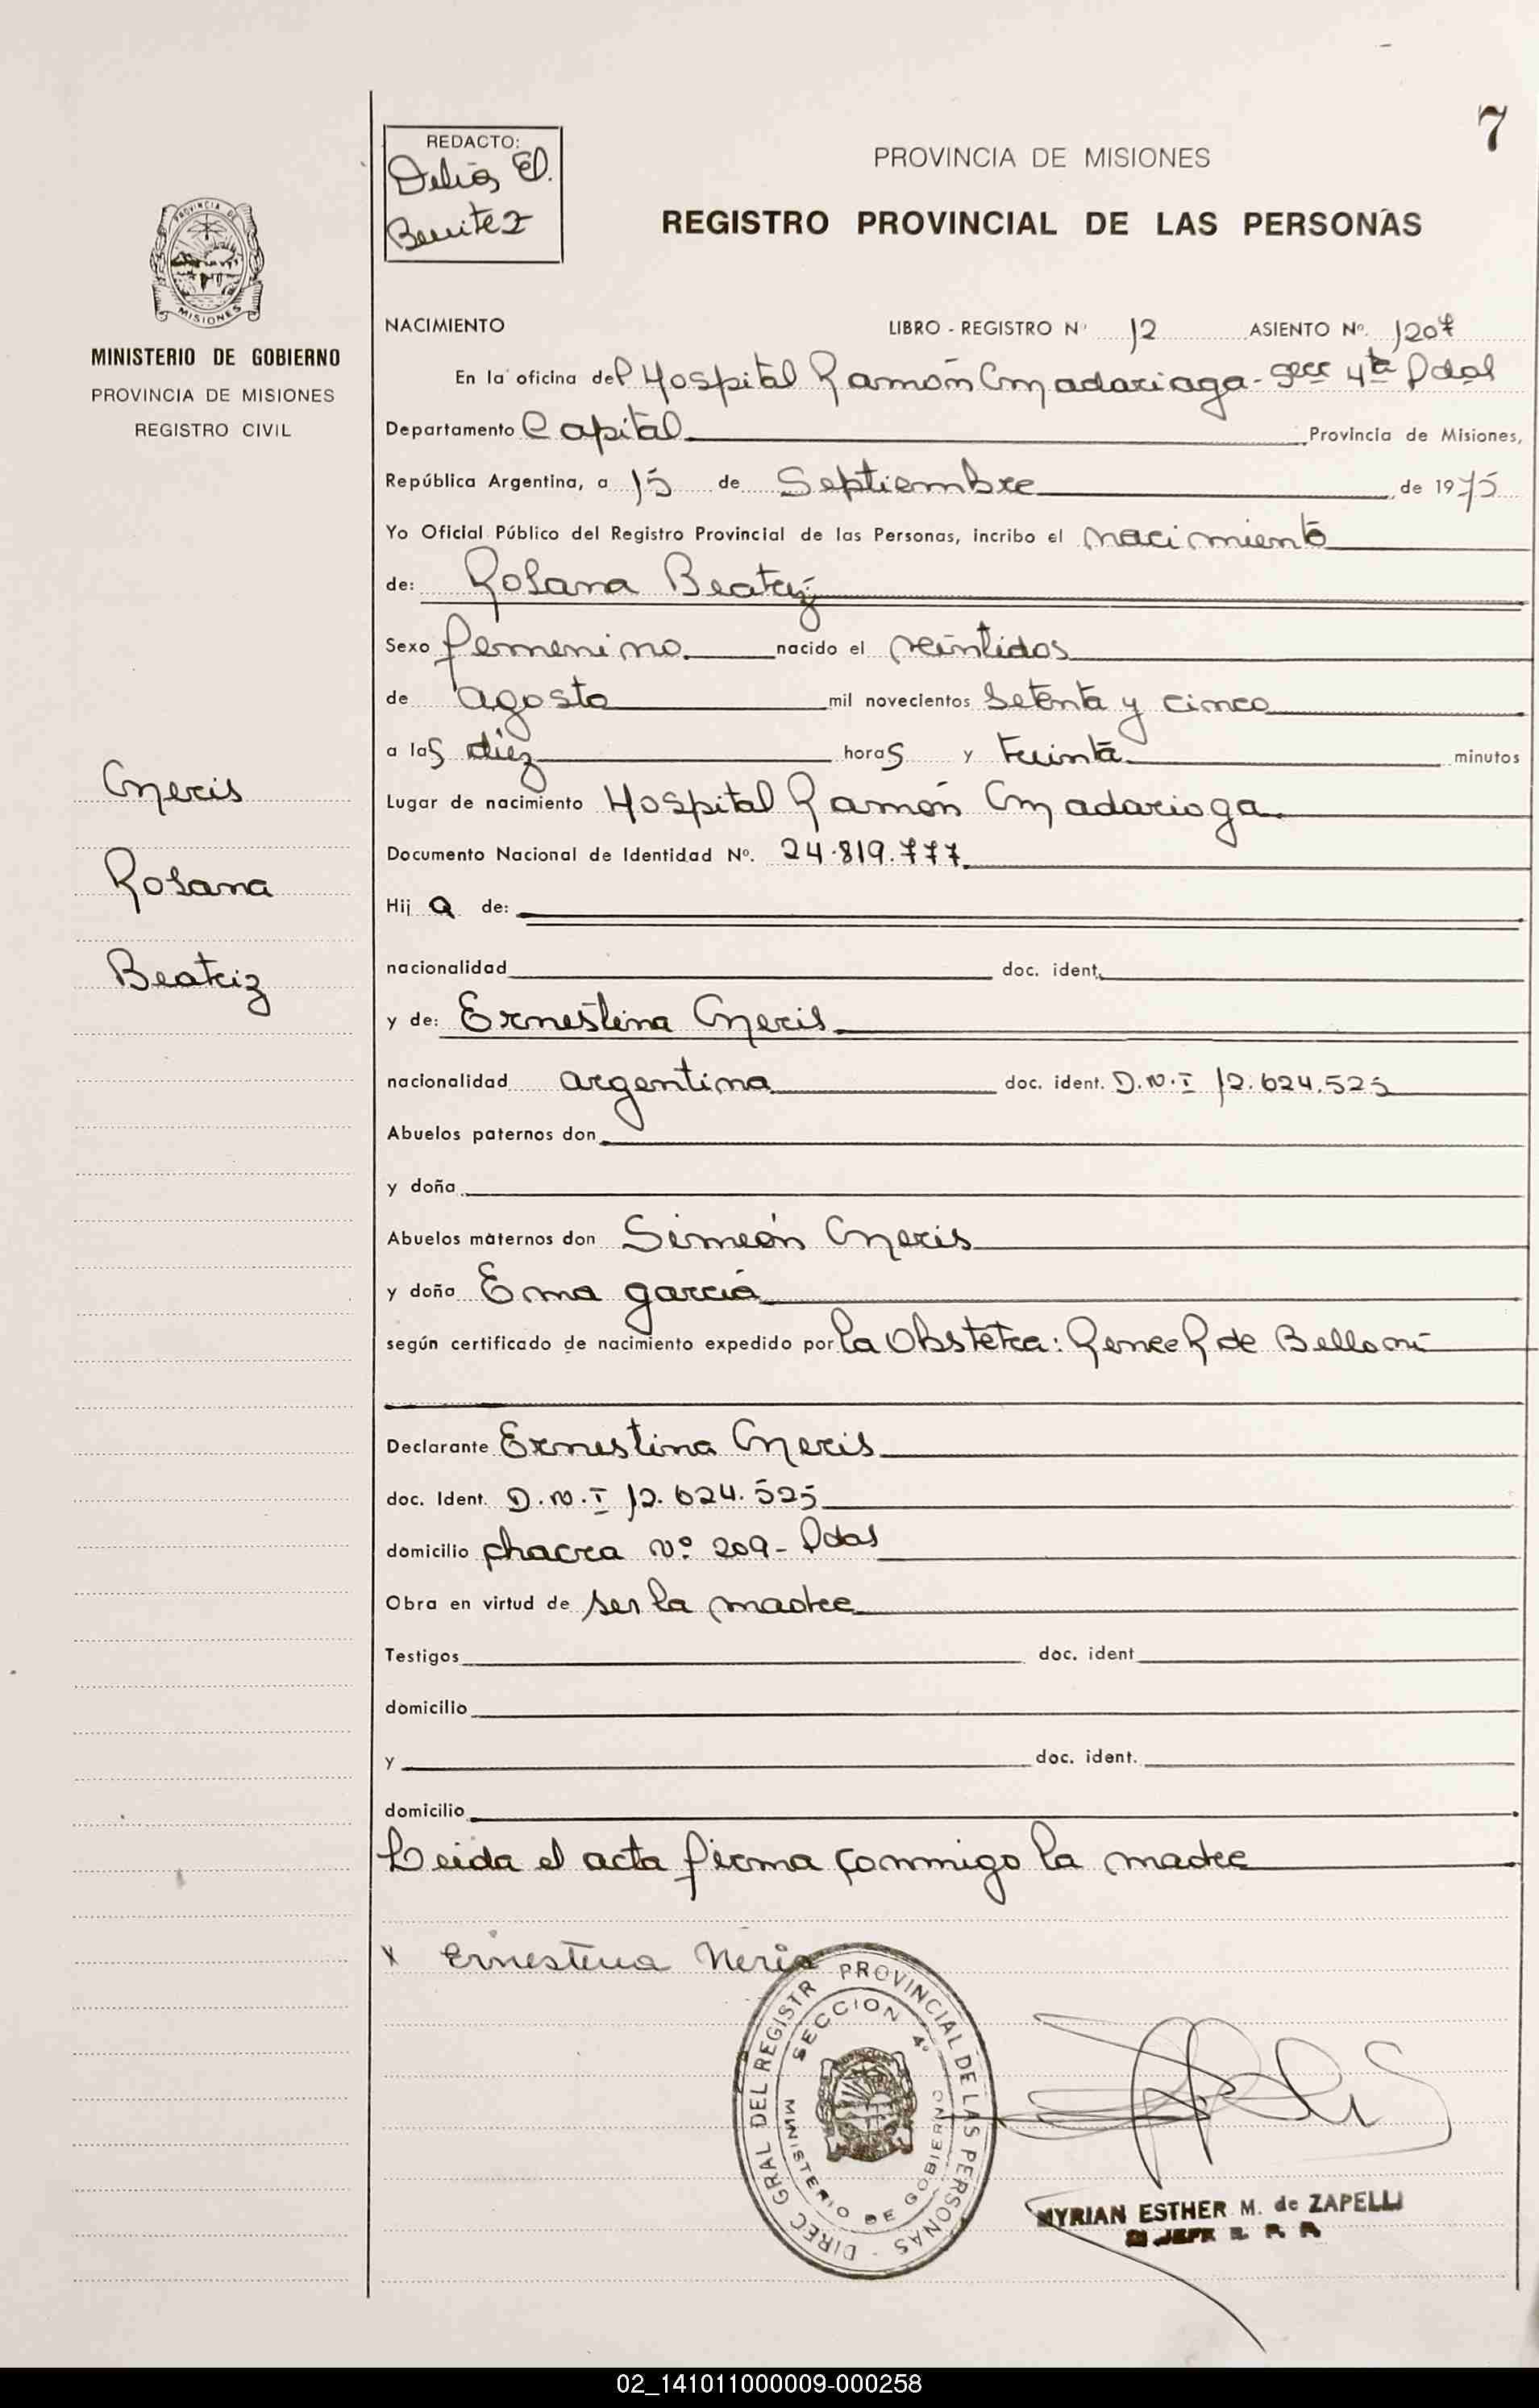 7
REDACTO:
Delia E.
Benitez
PROVINCIA DE MISIONES
REGISTRO PROVINCIAL DE LAS PERSONAS
PROVINCIA DE
MISIONES
MINISTERIO DE GOBIERNO
PROVINCIA DE MISIONES
REGISTRO CIVIL
NACIMIENTO LIBRO - REGISTRO Nº 12 ASIENTO Nº. 1207
En la oficina del Hospital Ramón Madariaga - Secc 4ta Pdas
Departamento Capital Provincia de Misiones,
República Argentina, a 15 de Septiembre de 1975
Yo Oficial Público del Registro Provincial de las Personas, incribo el nacimiento
de: Rosana Beatriz
Sexo femenino nacido el veintidos
de agosto mil novecientos setenta y cinco
a las diez horas y treinta minutos
Lugar de nacimiento Hospital Ramón Madariaga
Documento Nacional de Identidad Nº. 24.819.777
Hij a de:
nacionalidad doc. ident.
y de: Ernestina Neris
nacionalidad argentina doc. ident. D.N.I 12.624.525
Abuelos paternos don
y doña
Abuelos maternos don Simeón Neris
y doña Ema garcía
según certificado de nacimiento expedido por la Obstetra: Renee R de Belloni
Declarante Ernestina Neris
doc. Ident. D.N.I 12.624.525
domicilio chacra Nº 209 - Pdas
Obra en virtud de ser la madre
Testigos doc. ident
domicilio
y doc. ident.
domicilio
Leida el acta firma conmigo la madre
Neris
Rosana
Beatriz
x Ernestina Neris
DIREC GRAL DEL REGISTR PROVINCIAL DE LAS PERSONAS -
SECCION 4º
MINISTERIO DE GOBIERNO
MYRIAN ESTHER M. de ZAPELLI
JEFE R. P. P.
02_141011000009-000258